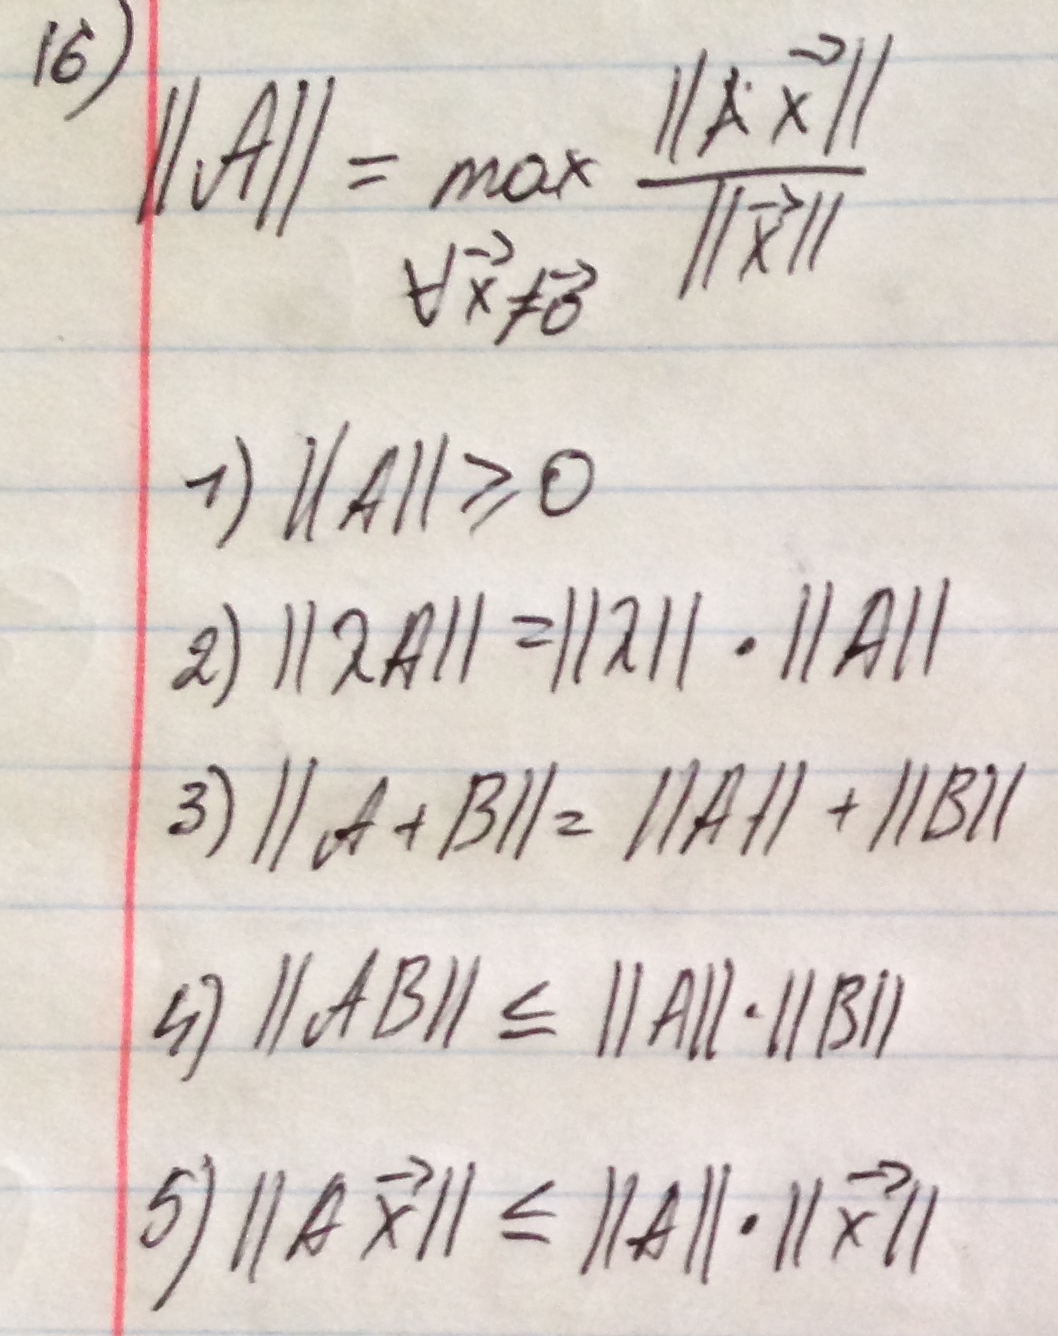 16)
||A|| = max ||A·x⃗|| / ||x⃗||
∀x⃗≠0⃗
1) ||A|| ⩾ 0
2) ||λA|| = ||λ|| · ||A||
3) ||A+B|| = ||A|| + ||B||
4) ||AB|| ≤ ||A||·||B||
5) ||Ax⃗|| ≤ ||A||·||x⃗||